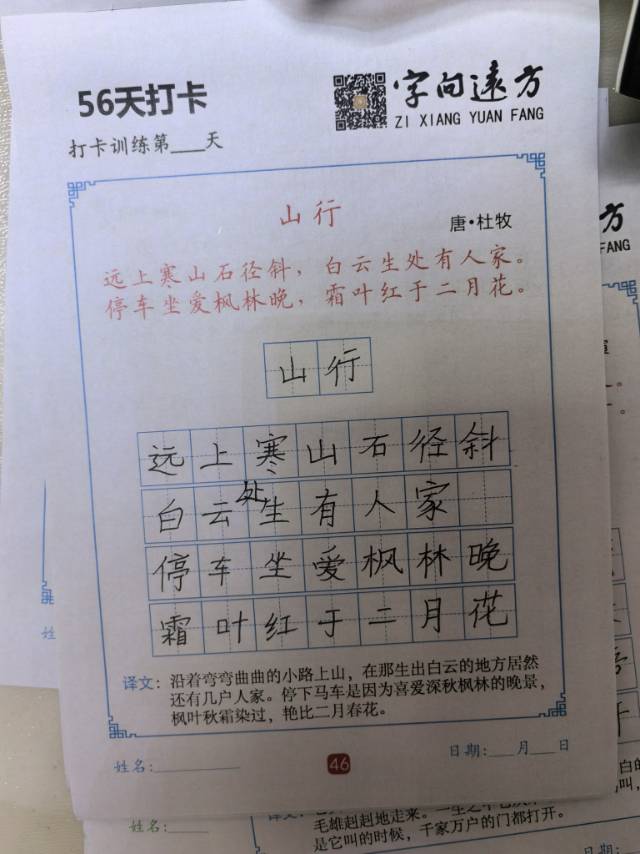 56天打卡
字向远方
ZI XIANG YUAN FANG
打卡训练第___天
山行
唐·杜牧
远上寒山石径斜，白云生处有人家。
停车坐爱枫林晚，霜叶红于二月花。
山行
远上寒山石径斜
处
白云生有人家
停车坐爱枫林晚
霜叶红于二月花
译文：沿着弯弯曲曲的小路上山，在那生出白云的地方居然
还有几户人家。停下马车是因为喜爱深秋枫林的晚景，
枫叶秋霜染过，艳比二月春花。
姓名：
46
日期：___月___日
方
FANG
姓名：
毛雄赳赳地走来。一生之中
是它叫的时候，千家万户的门都打开。
日期：